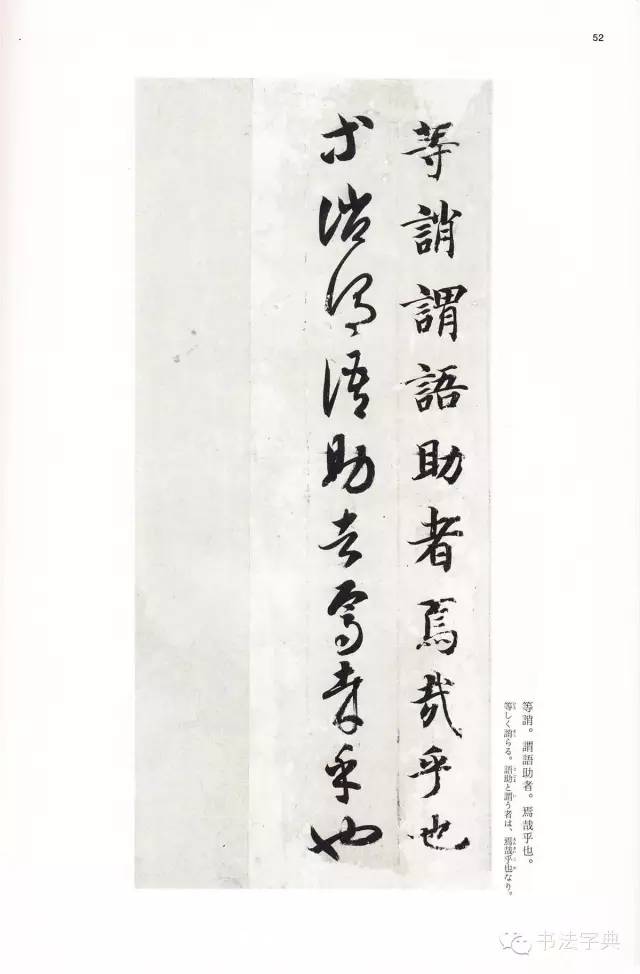 52
等誚謂語助者焉哉乎也
等誚謂語助者焉哉乎也
等誚。謂語助者。焉哉乎也。
等しく誚らる。語助と謂う者は、焉哉乎也なり。
书法字典